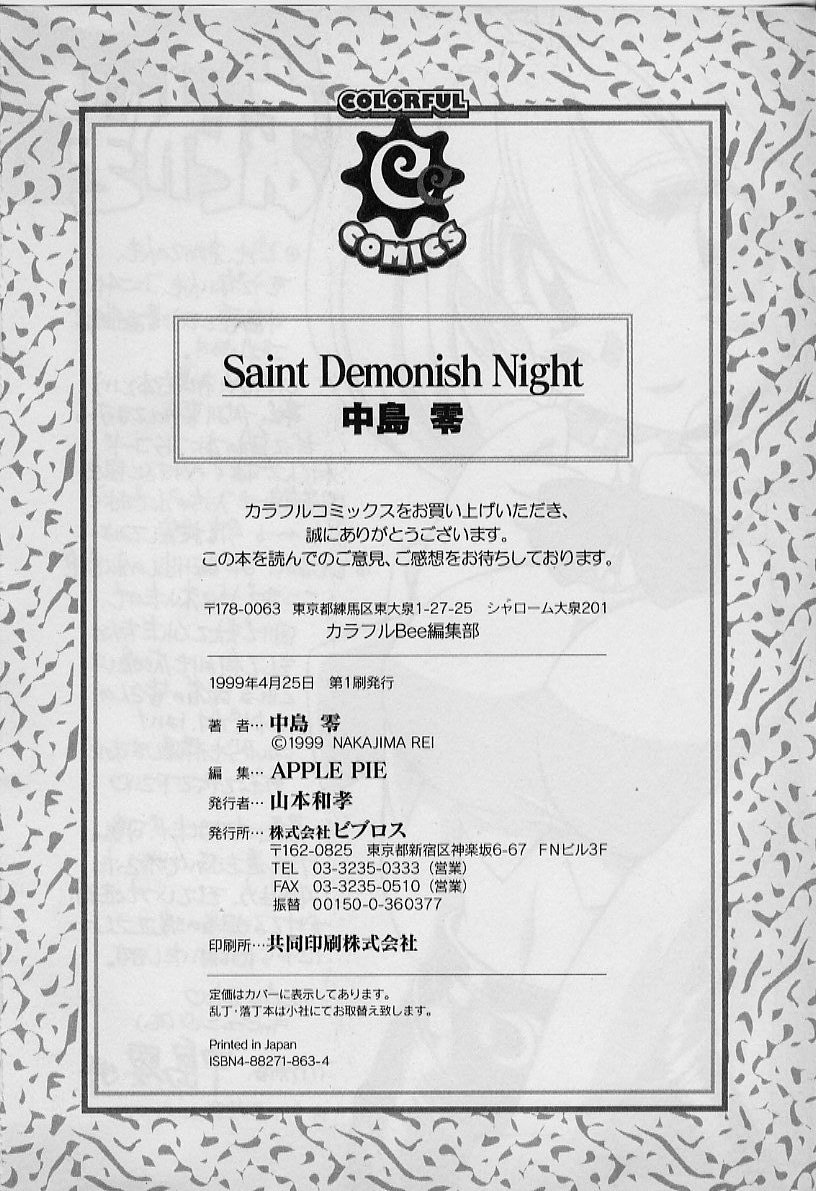 COLORFUL
COMICS
Saint Demonish Night
中島 零
カラフルコミックスをお買い上げいただき、
誠にありがとうございます。
この本を読んでのご意見、ご感想をお待ちしております。
〒178-0063 東京都練馬区東大泉1-27-25 シャローム大泉201
カラフルBee編集部
1999年4月25日 第1刷発行
著 者… 中島 零
©1999 NAKAJIMA REI
編 集… APPLE PIE
発行者… 山本和孝
発行所… 株式会社ビブロス
〒162-0825 東京都新宿区神楽坂6-67 FNビル3F
TEL 03-3235-0333（営業）
FAX 03-3235-0510（営業）
振替 00150-0-360377
印刷所…共同印刷株式会社
定価はカバーに表示してあります。
乱丁・落丁本は小社にてお取替え致します。
Printed in Japan
ISBN4-88271-863-4